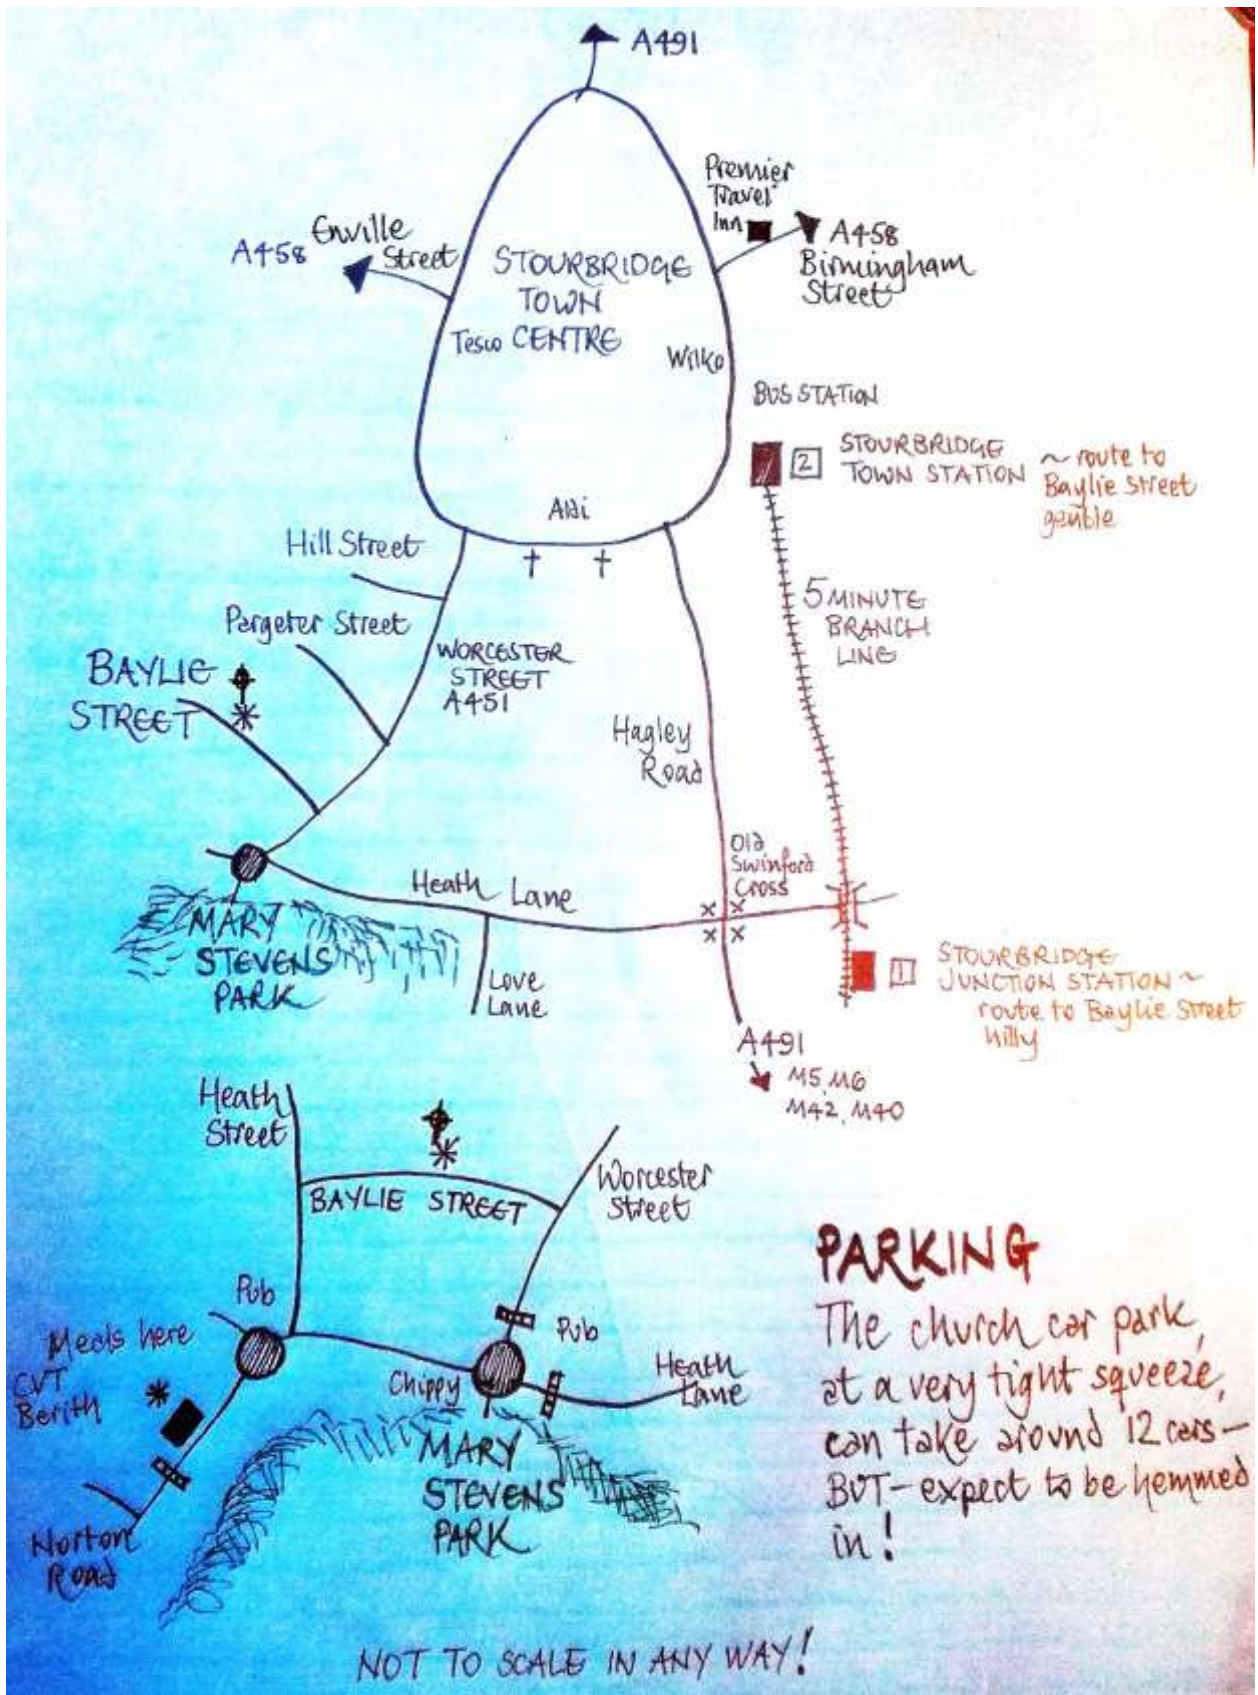 A491
Premier
Travel
Inn
A458
Birmingham
Street
Enville
Street
A458
STOURBRIDGE
TOWN
CENTRE
Tesco
Wilko
BUS STATION
2
STOURBRIDGE
TOWN STATION
~ route to
Baylie Street
gentle
Aldi
Hill Street
Pargeter Street
BAYLIE
STREET
WORCESTER
STREET
A451
5 MINUTE
BRANCH
LINE
Hagley
Road
Old
Swinford
Cross
Heath Lane
MARY
STEVENS
PARK
Love
Lane
1
STOURBRIDGE
JUNCTION STATION ~
route to Baylie Street
hilly
A491
M5, M6
M42, M40
Heath
Street
BAYLIE STREET
Worcester
Street
Pub
Pub
Meals here
CVT
Berith
Chippy
Heath
Lane
MARY
STEVENS
PARK
Norton
Road
PARKING
The church car park,
at a very tight squeeze,
can take around 12 cars –
BUT – expect to be hemmed
in!
NOT TO SCALE IN ANY WAY!